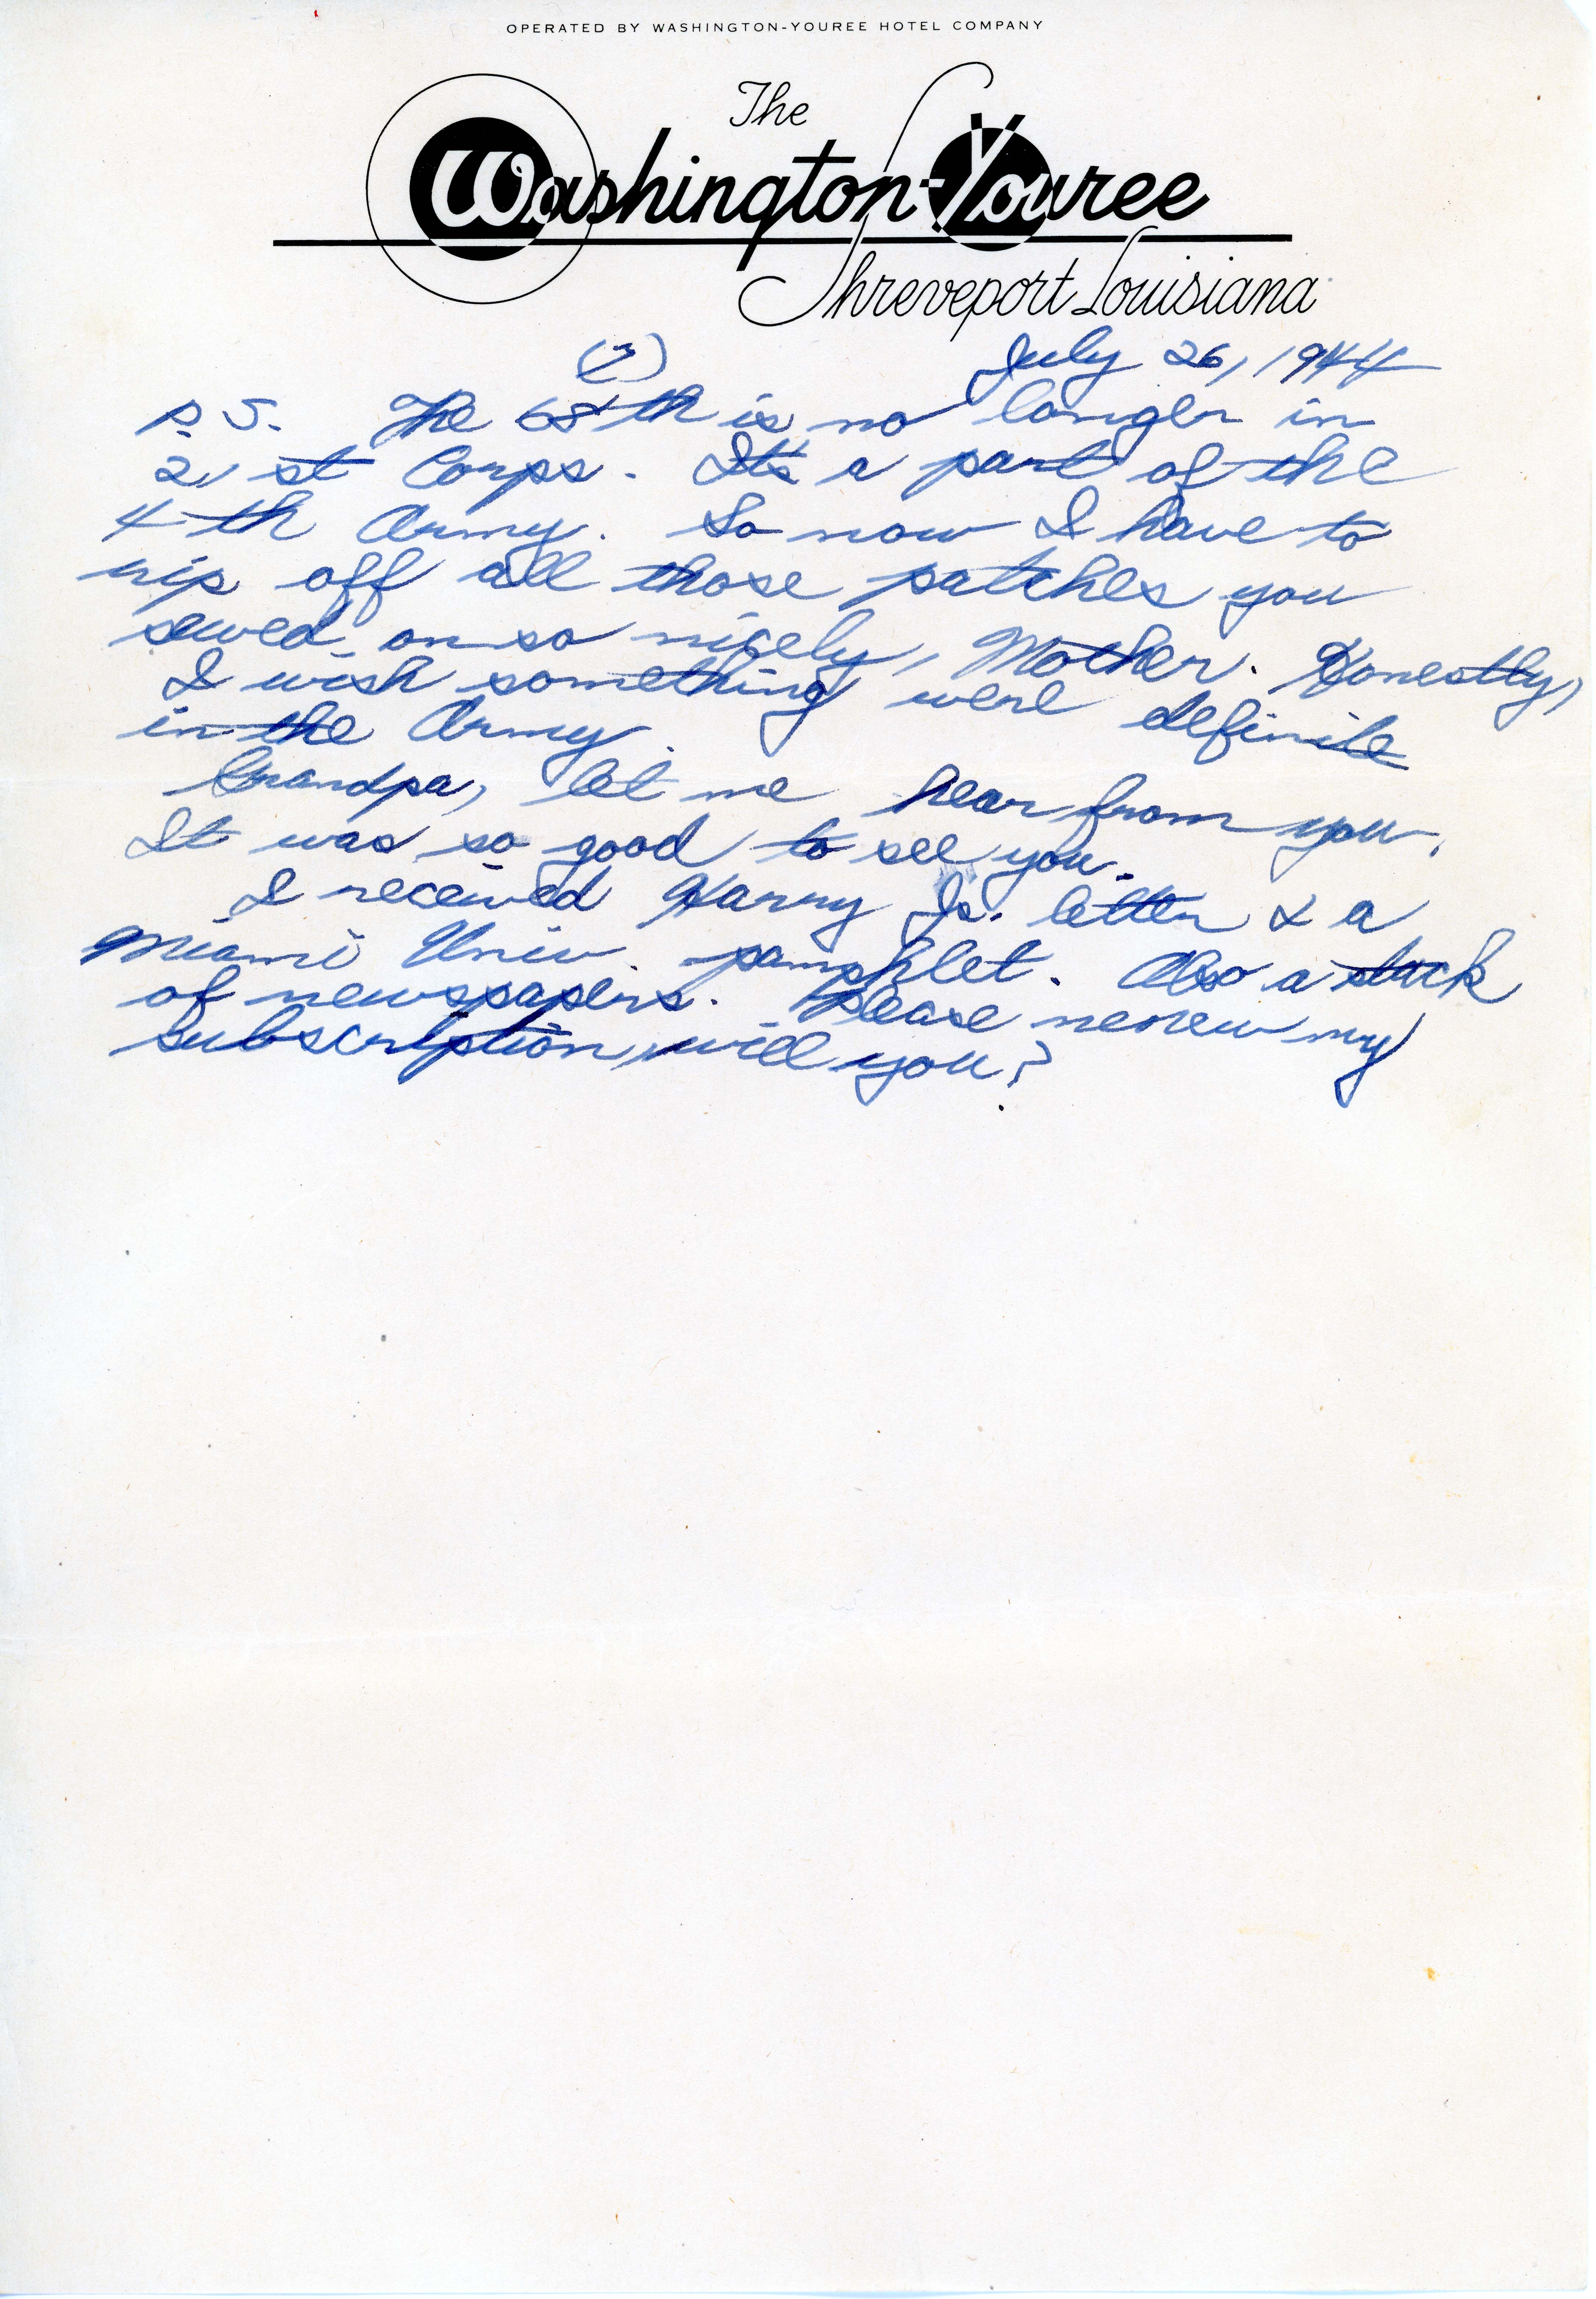 OPERATED BY WASHINGTON-YOUREE HOTEL COMPANY
The
Washington-Youree
Shreveport Louisiana
July 26, 1944
P.S. The 68th is no longer in
21st Corps. It's a part of the
4th Army. So now I have to
rip off all those patches you
sewed on so nicely, Mother. Honestly,
I wish something were definite
in the Army.
Grandpa, let me hear from you.
It was so good to see you.
I received Harry Jr. letter & a
Miami Univ. pamphlet. Also a stack
of newspapers. Please renew my
subscription, will you?